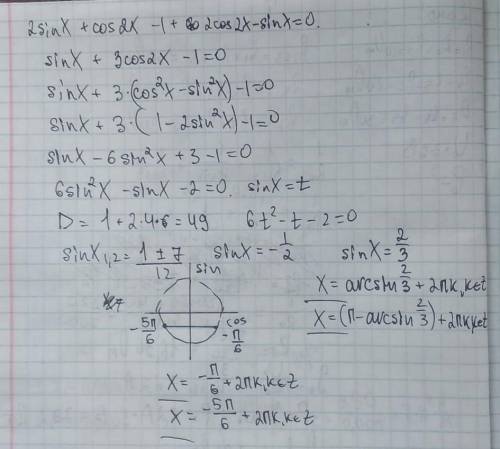 2sinX + cos2X - 1 + 2cos2X - sinX = 0.
sinX + 3cos2X - 1 = 0
sinX + 3·(cos²X - sin²X) - 1 = 0
sinX + 3·(1 - 2sin²X) - 1 = 0
sinX - 6sin²X + 3 - 1 = 0
6sin²X - sinX - 2 = 0. sinX = t
D = 1 + 2·4·6 = 49 6t² - t - 2 = 0
sinX₁,₂ = (1 ± 7)/12 sinX = -1/2 sinX = 2/3
sin X = arcsin 2/3 + 2πk, k∈Z
X = (π - arcsin 2/3) + 2πk, k∈Z
-5π/6 cos -π/6
X = -π/6 + 2πk, k∈Z
X = -5π/6 + 2πk, k∈Z